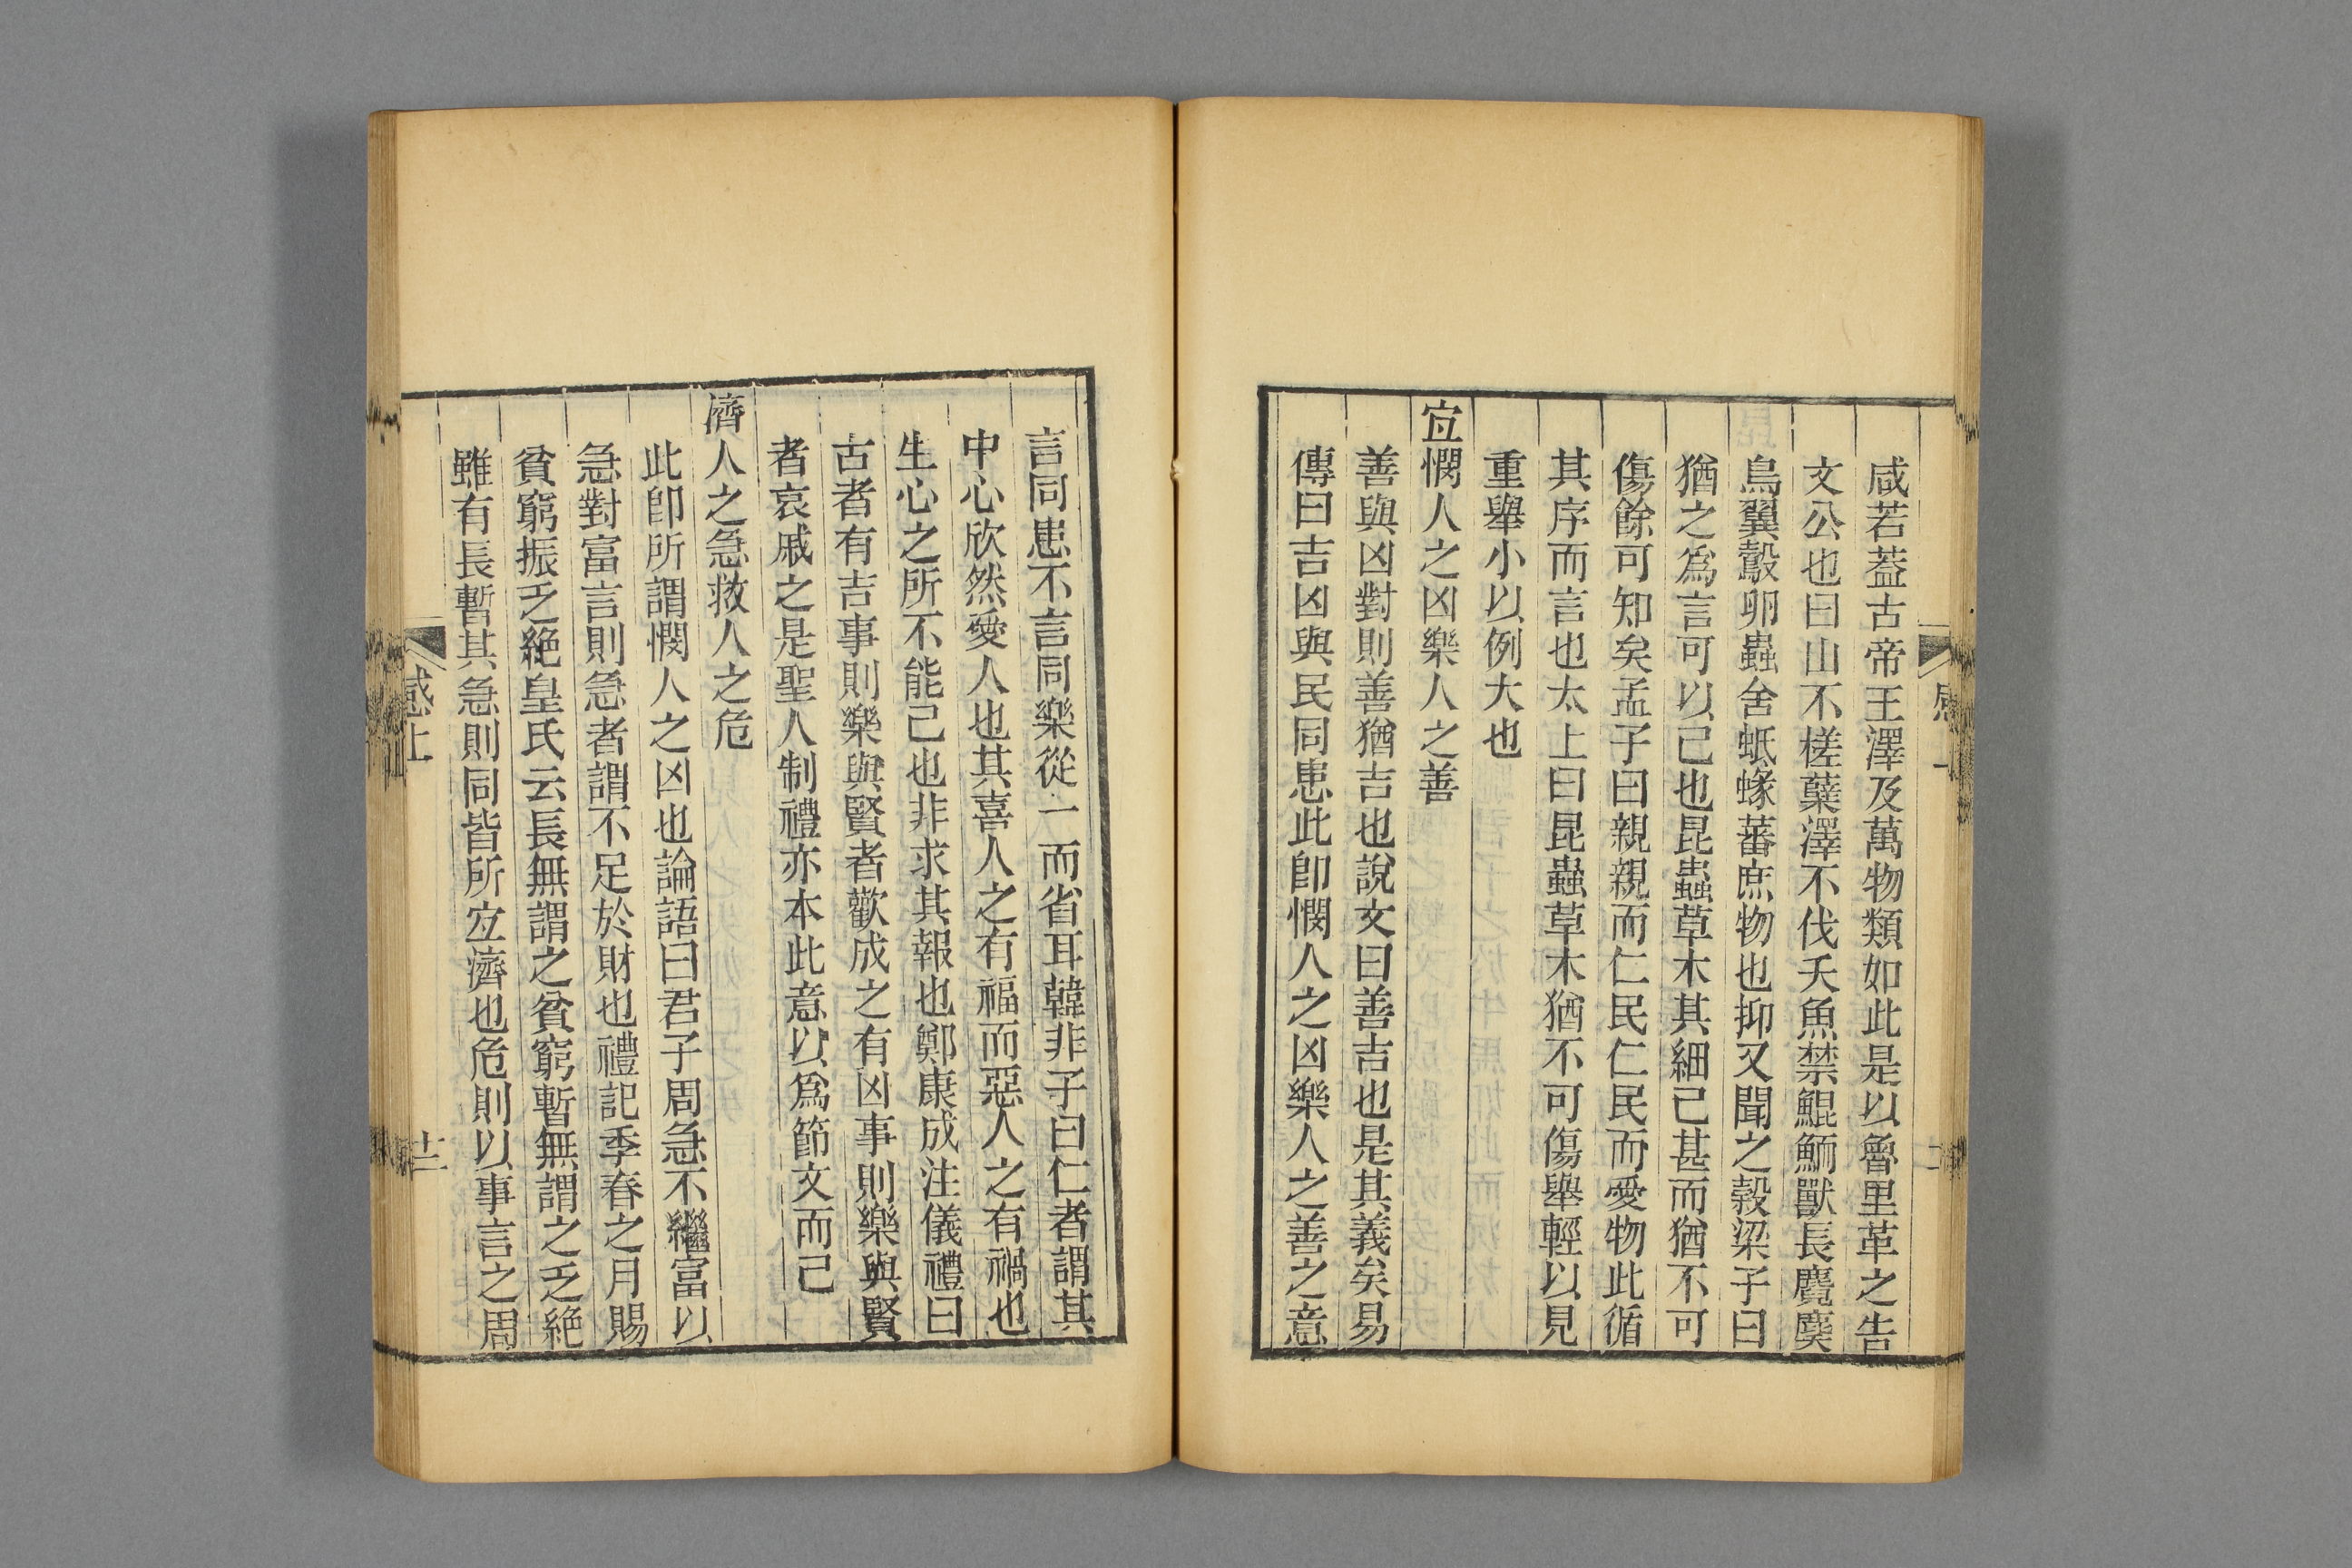 咸若葢古帝王澤及萬物類如此是以魯里革之告
文公也曰山不槎蘖澤不伐夭魚禁鯤鮞獸長麑麌
鳥翼鷇卵蟲舍蚳蝝蕃庶物也抑又聞之榖梁子曰
猶之爲言可以己也昆蟲草木其細己甚而猶不可
傷餘可知矣孟子曰親親而仁民仁民而愛物此循
其序而言也太上曰昆蟲草木猶不可傷舉輕以見
重舉小以例大也
宐憫人之凶樂人之善
善與凶對則善猶吉也說文曰善吉也是其義矣易
傳曰吉凶與民同患此卽憫人之凶樂人之善之意
言同患不言同樂從一而省耳韓非子曰仁者謂其
中心欣然愛人也其喜人之有福而惡人之有禍也
生心之所不能己也非求其報也鄭康成注儀禮曰
古者有吉事則樂與賢者歡成之有凶事則樂與賢
者哀戚之是聖人制禮亦本此意以爲節文而己
濟人之急救人之危
此卽所謂憫人之凶也論語曰君子周急不繼富以
急對富言則急者謂不足於財也禮記季春之月賜
貧窮振乏絶皇氏云長無謂之貧窮暫無謂之乏絶
雖有長暫其急則同皆所宐濟也危則以事言之周
感上
十二